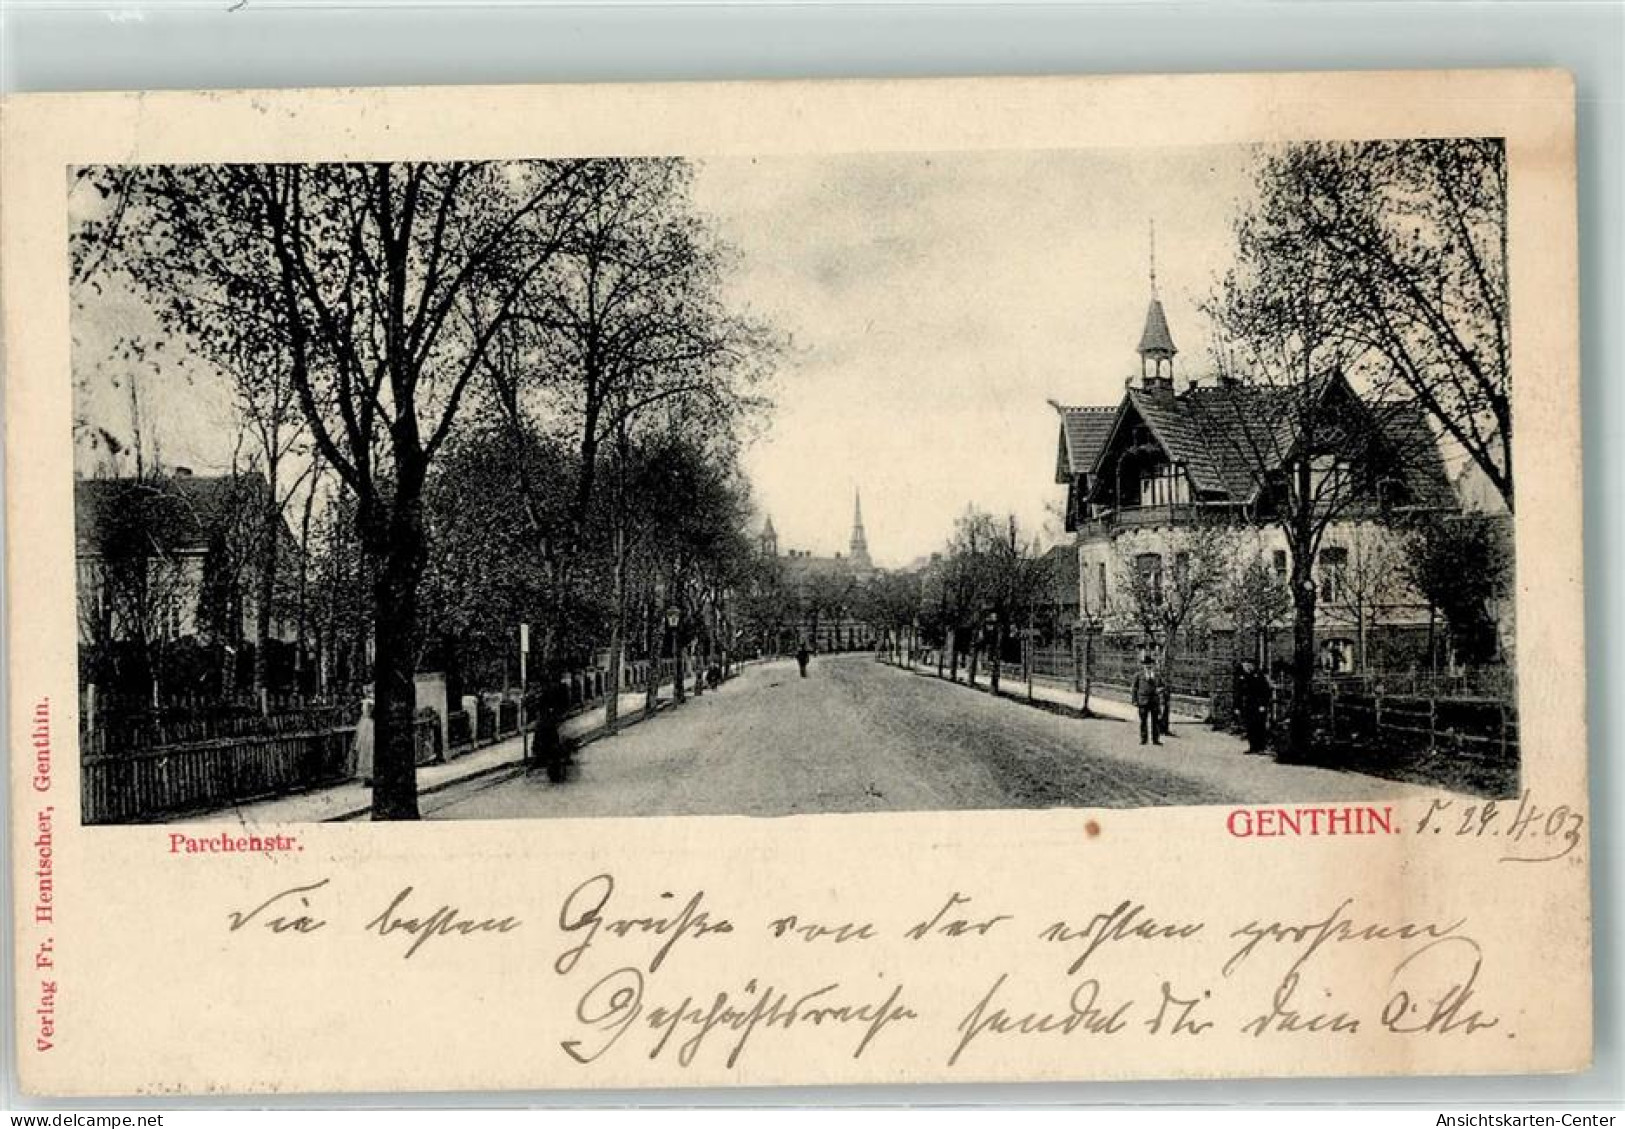 Verlag Fr. Hentscher, Genthin.
Parchenstr.
GENTHIN. d. 29. 4. 03
Die besten Grüße von der ersten großen
Geschäftsreise sendet Dir Dein
Ansichtskarten-Center